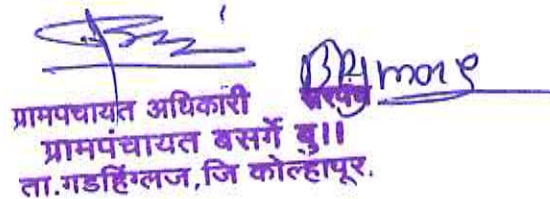 ग्रामपंचायत अधिकारी सरपंच
ग्रामपंचायत बसर्गे बु।।
ता.गडहिंग्लज,जि कोल्हापूर.